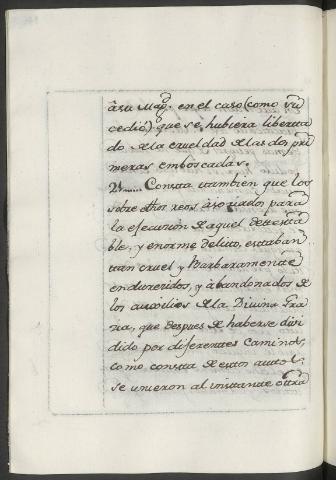 â su Mag.d en el caso (como su
cedió) que se hubiera liberta
do de la crueldad de las dos pri
meras emboscadas.
Consta tambien que los
sobre dthos reos, asociados para
la ejecusion de aquel detesta
ble, y enorme delito, estaban
tan cruel y Barbaramente
endurecidos, y abandonados de
los auxilios de la Divina Gra
zia, que despues de haberse divi
dido por diferentes caminos,
como consta de estos autos,
se unieron al instante otra